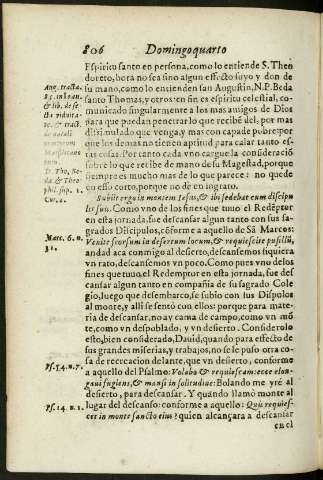 806 Domingo quarto
Espiritu santo en persona, como lo entiende S. Theo
doreto, hora no sea sino algun effecto suyo y don de
Aug. tracta.
su mano, como lo entienden san Augustin, N.P. Beda
santo Thomas, y otros: en fin es espiritu celestial, co-
municado singularmente a los mas amigos de Dios
para que puedan penetrar lo que recibe del, por mas
dissimulado que venga, y mas con capa de pobre por
que los demas no tienen aptitud para calar tanto es-
sas cosas. Por tanto cada vno cargue la consideració
sobre lo que recibe de mano de su Magestad, porque
siempre es mucho mas de lo que parece: no quede
en esso corto, porque no dè en ingrato.
Subijt ergo in montem Iesus, & ibi sedebat cum discipu
lis suis. Como vno de los fines que tuuo el Redéptor
en esta jornada, fue descansar algun tanto con sus sa-
grados Discipulos, cóforme a aquello de Sã Marcos:
Marc. 6. n.
31.
Venite seorsum in desertum locum, & requiescite pusillũ,
andad aca conmigo al desierto, descansemos siquiera
vn rato, descansemos vn poco. Como pues vno de los
fines que tuuo el Redemptor en esta jornada, fue des
cansar algun tanto en compañia de su sagrado Cole
gio, luego que desembarco, se subio con lus Dispulos
al monte, y alli se sentó con ellos: porque para ma-
teria de descansar, no ay cama de campo, como vn mõ
te, como vn despoblado, y vn desierto. Considerolo
esto, bien considerado, Dauid, quando para effecto de
sus grandes miserias, y trabajos, no se le puso otra co-
sa de recreacion delante, que vn desierto, conforme
Ps. 54. n. 7.
a aquello del Psalmo: Volabo & requiescam: ecce elon-
gaui fugiens, & mansi in solitudine: Bolando me yrè al
desierto, para descansar. Y quando llamò monte al
Ps. 14. n. 1.
lugar del descanso: conforme a aquello: Quis requies-
cet in monte sancto eius? quien alcançara a descansar
en el